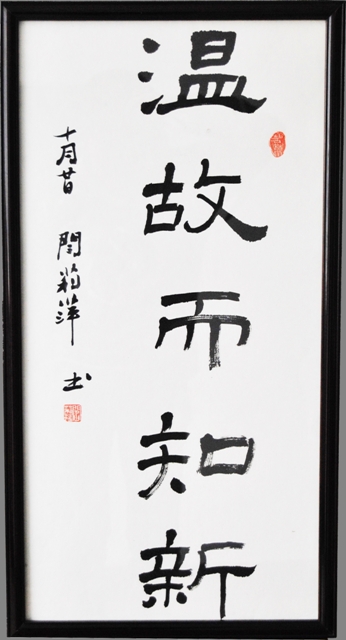 温故而知新
十月廿日 闫莉萍 书